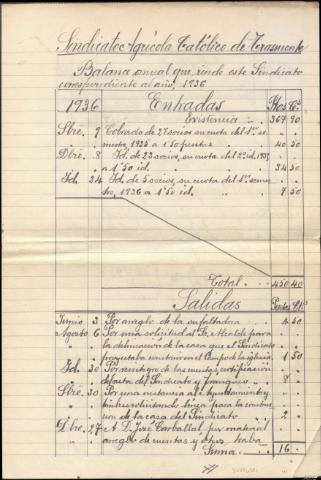 Sindicato Agrícola Católico de Terasmonte
Balance anual que rinde este Sindicato
correspondiente al año, 1936
1936 Entradas Ptas Cts
Existencia 367 90
Sbre. 9 Cobrado de 27 socios su cuota del 1er se-
mestre, 1935 a 1'50 pesetas 40 50
Dbre. 8 Id. de 23 socios, su cuota del 2º id. 1935
a 1'50 id. 34 50
Id. 24 Id. de 5 socios, su cuota del 1er semes-
tre, 1936 a 1'50 id. 7 50
Total 450 40
Salidas Pesetas Cts
Junio 3 Por arreglo de la sulfatadora 4 50
Agosto 6 Por una solicitud al Sr. Alcalde para
" la delineación de la casa que el Sindicato
" proyectaba construir en el Campo de la iglesia 1 50
Id. 30 Por reintegro de las cuentas, certificación
" del acta del Sindicato y franqueo 8
Sbre. 30 Por una instancia al Ayuntamiento y
" timbres solicitando linea para la construc-
" cion de la casa del Sindicato 2
Dbre. 27 A D. José Carballal por material
" arreglo de cuentas y
Suma 16